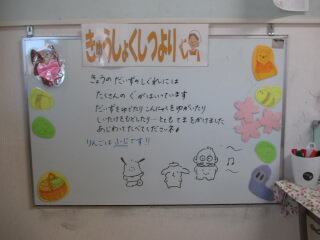 きゅうしょくしつより
きょうの だいずの しぐれにには
たくさんの ぐが はいっています
だいずを ゆでたり こんにゃくを ゆがいたり
しいたけを もどしたり… とても てまを かけました
あじわって たべてくださいネ
りんごは ふじです!!